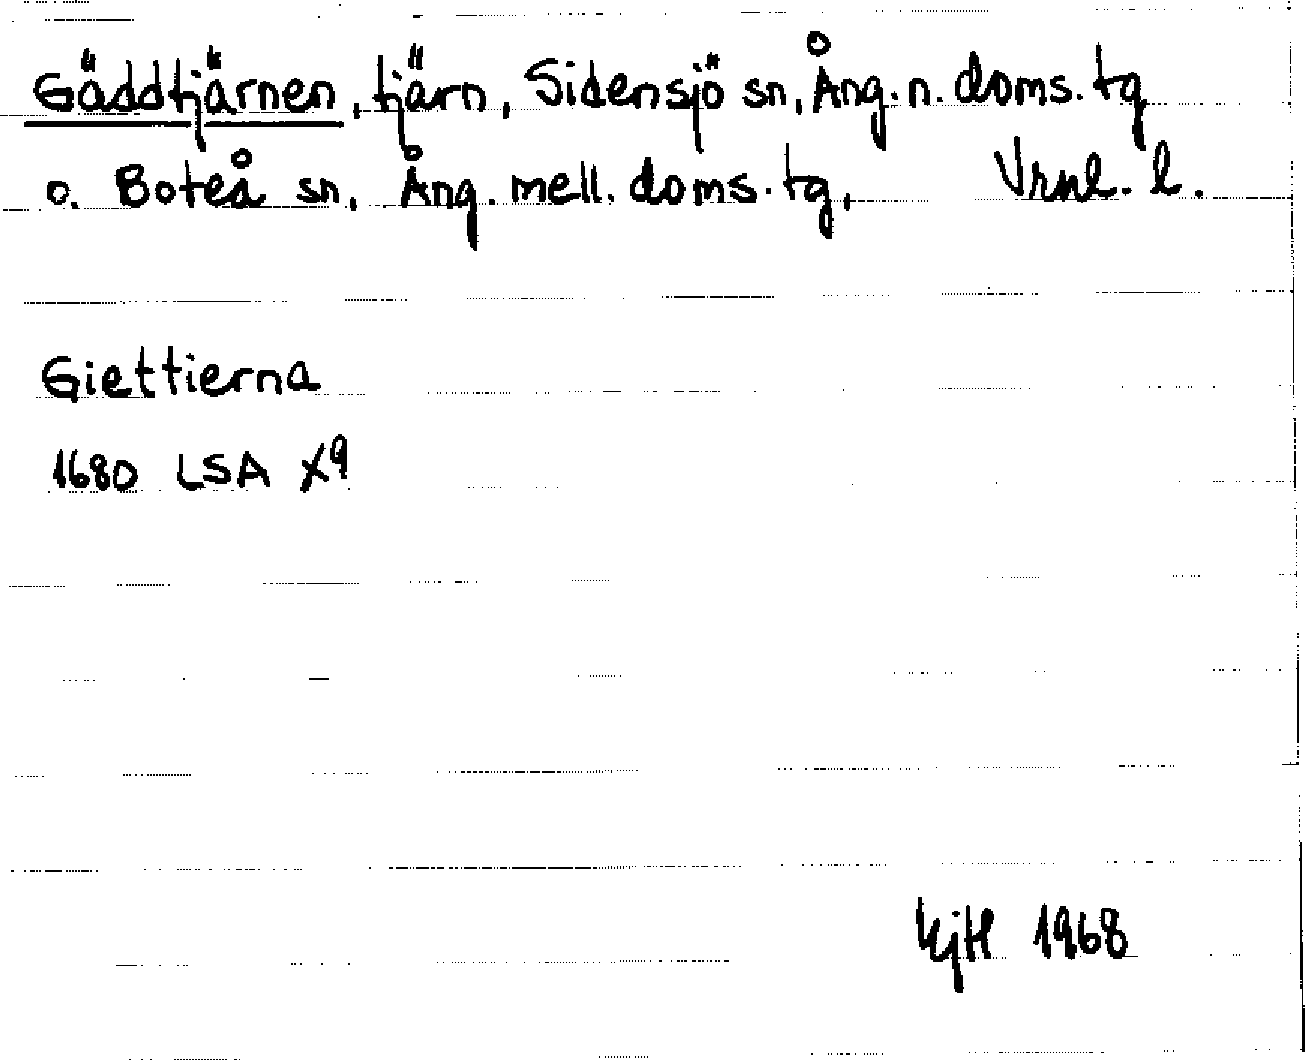 Gäddtjärnen, tjärn, Sidensjö sn, Ång. n. doms. tg
o. Boteå sn, Ång. mell. doms. tg, Vrnl. l.
Giettierna
1680 LSA X9
KjH 1968